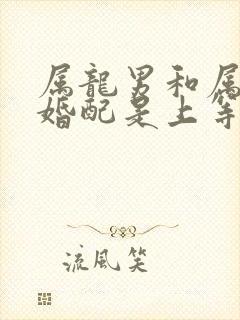 属龍男和属
婚配是上等
流風笑